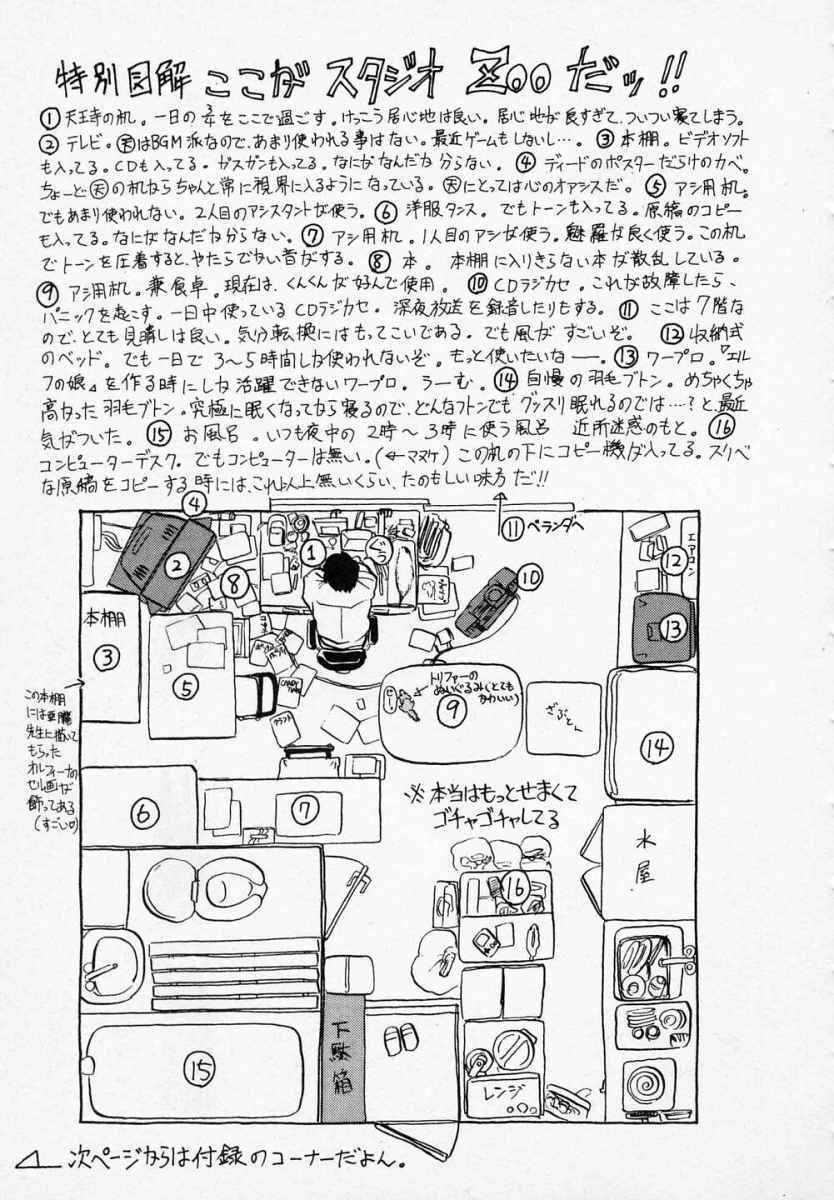 特別図解 ここが スタジオ Zoo だッ!!
①天王寺の机。一日の多をここで過ごす。けっこう居心地は良い。居心地が良すぎて、ついつい寝てしまう。
②テレビ。㊝はBGM派なので、あまり使われる事はない。最近ゲームもしないし…。③本棚。ビデオソフト
も入ってる。CDも入ってる。ガスガンも入ってる。なにがなんだか分らない。④ディードのポスターだらけのカベ。
ちょーど の机からちゃんと常に視界に入るようになっている。 にとっては心のオアシスだ。⑤アシ用机。
でもあまり使われない。2人目のアシスタントが使う。⑥洋服タンス。でもトーンも入ってる。原稿のコピー
も入ってる。なにがなんだか分らない。⑦アシ用机。1人目のアシが使う。魅羅が良く使う。この机
でトーンを圧着すると、やたらでかい音がする。⑧本。本棚に入りきらない本が散乱している。
⑨アシ用机。兼食卓。現在は、くんくんが好んで使用。⑩CDラジカセ。これが故障したら、
パニックを起こす。一日中使っているCDラジカセ。深夜放送を録音したりもする。⑪ここは7階な
ので、とても見晴しは良い。気分転換にはもってこいである。でも風がすごいぞ。⑫収納式
のベッド。でも一日で3〜5時間しか使われないぞ。もっと使いたいなー。⑬ワープロ。『エル
フの娘』を作る時にしか活躍できないワープロ。うーむ。⑭自慢の羽毛ブトン。めちゃくちゃ
高かった羽毛ブトン。究極に眠くなってから寝るので、どんなフトンでもグッスリ眠れるのでは…?と、最近
気がついた。⑮お風呂。いつも夜中の2時〜3時に使う風呂 近所迷惑のもと。⑯
コンピューターデスク。でもコンピューターは無い。(←マヌケ)この机の下にコピー機が入ってる。スリベ
な原稿をコピーする時には、これ以上無いくらい、たのもしい味方だ!!
④
⑪ベランダへ
①
②
⑧
⑩
エアコン
⑫
⑬
本棚
③
⑤
トリファーの
ぬいぐるみ(とても
かわいい)
⑨
ざぶとん
⑭
この本棚
には
先生に描いて
もらった
オルフィーナの
セル画が
飾ってある
(すごい♡)
⑥
⑦
※本当はもっとせまくて
ゴチャゴチャしてる
水屋
⑯
⑮
下駄箱
レンジ
次ページからは付録のコーナーだよん。